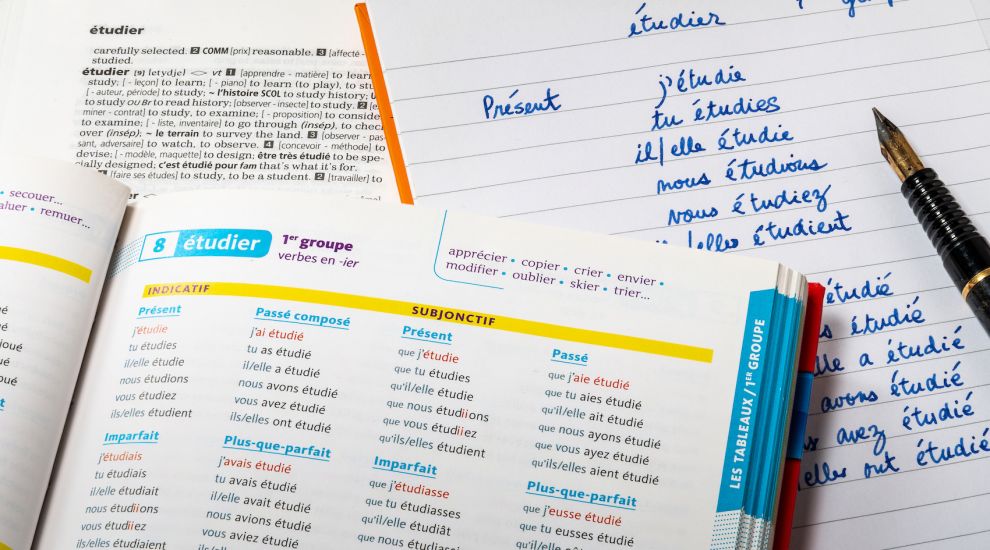 étudier
carefully selected. 2 COMM [prix] reasonable. 3 [affecté -
studied.
étudier [9] [etydje] <> vt 1 [apprendre - matière] to learn
study; [- leçon] to learn; [- piano] to learn (to play), to stu
[- auteur, période] to study; ~ l'histoire SCOL to study history; U
to study OU Br to read history; [observer - insecte] to study. 2 [e
miner - contrat] to study, to examine; [- proposition] to conside
to examine; [- liste, inventaire] to go through (insép), to chec
over (insép); ~ le terrain to survey the land. 3 [observer - pas
sant, adversaire] to watch, to observe. 4 [concevoir - méthode] to
devise; [- modèle, maquette] to design; être très étudié to be spe-
cially designed; c'est étudié pour fam that's what it's for.
[faire ses études] to study, to be a student. 2 [travailler] to
étudier
Présent
j'étudie
tu étudies
il/elle étudie
nous étudions
vous étudiez
/elles étudient
étudié
étudié
lle a étudié
avons étudié
avez étudié
elles ont étudié
• secouer...
aluer • remuer...
é
é
oué
oué
8 étudier 1er groupe
verbes en -ier
apprécier • copier • crier • envier •
modifier • oublier • skier • trier...
INDICATIF
Présent
j'étudie
tu étudies
il/elle étudie
nous étudions
vous étudiez
ils/elles étudient
Passé composé
j'ai étudié
tu as étudié
il/elle a étudié
nous avons étudié
vous avez étudié
ils/elles ont étudié
Imparfait
j'étudiais
tu étudiais
il/elle étudiait
nous étudiions
vous étudiiez
ils/elles étudiaient
Plus-que-parfait
j'avais étudié
tu avais étudié
il/elle avait étudié
nous avions étudié
vous aviez étudié
SUBJONCTIF
Présent
que j'étudie
que tu étudies
qu'il/elle étudie
que nous étudiions
que vous étudiiez
qu'ils/elles étudient
Passé
que j'aie étudié
que tu aies étudié
qu'il/elle ait étudié
que nous ayons étudié
que vous ayez étudié
qu'ils/elles aient étudié
Imparfait
que j'étudiasse
que tu étudiasses
qu'il/elle étudiât
Plus-que-parfait
que j'eusse étudié
que tu eusses étudié
LES TABLEAUX / 1ER GROUPE